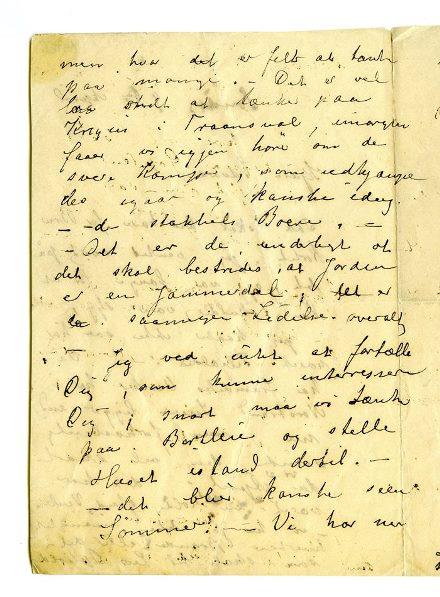 men hvor det er fælt at tænke
paa mange. – Det er vel
værdt at tænke paa
Krigen i Traansval, imorgen
faaer vi igjen høre om de
svere Kampe, som udkjæmpe
des igaar og kanske idag.
– de stakkels Boere. –
– Det er da underligt at
det skal bestrides, at Jorden
er en Jammerdal, det er
saa mange Lidelser overalt
– Jeg ved intet at fortælle
Dig, som kunne interessere
Dig; snart maa vi tænke
paa Bortleie og stelle
Huset istand dertil. –
– det blir kanske seen
Sommer. – Vi har nu